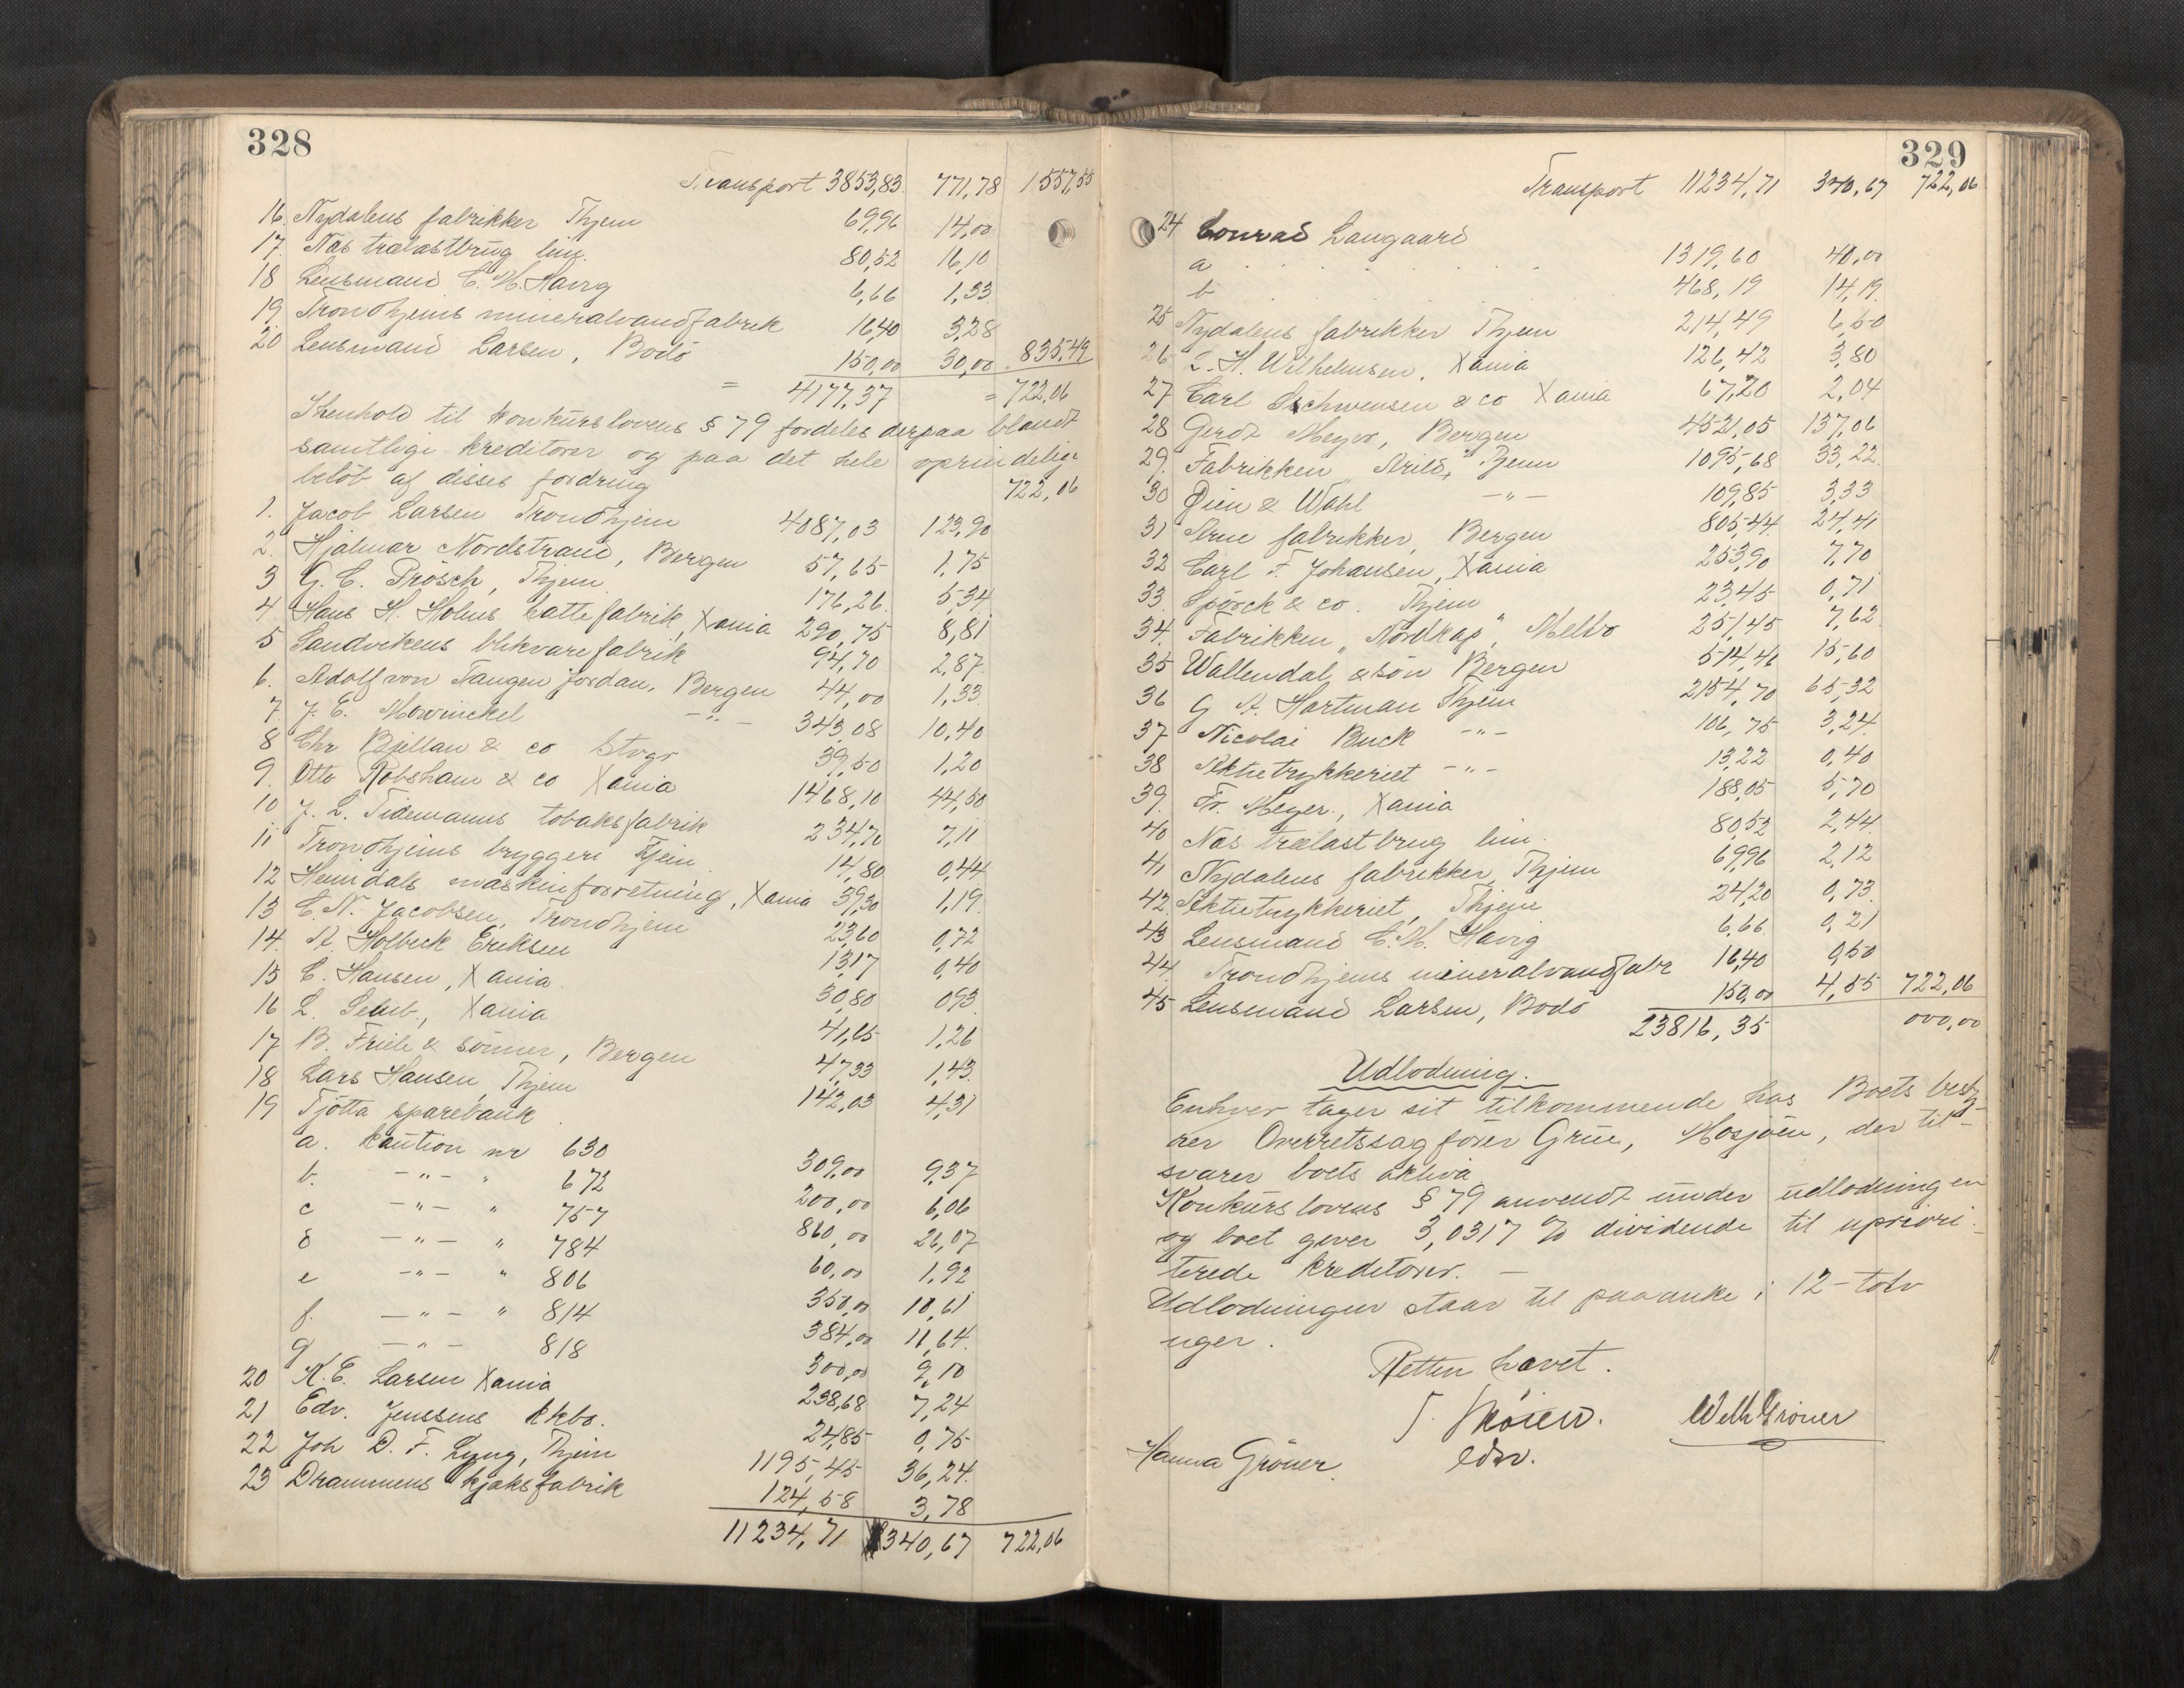 328
Transport 3853,83 771,78 1557,55
16. Nydalens fabrikker Thjem 69,96 14,00
17. Næs trælastbrug lim. 80,52 16,10
18 Lensmand C. M. Havig 6,66 1,33
19 Trondhjems mineralvandfabrik 16,40 3,28
20 Lensmand Larsen, Bodö 150,00 30,00 835,49
= 4177,37 = 722,06
I henhold til konkurslovens § 79 fordeles derpaa blandt
samtlige kreditorer og paa det hele oprindelige
belöb af disses fordring 722,06
1. Jacob Larsen Trondhjem 4087,03 123,90
2. Hjalmar Nordstrand, Bergen 57,65 1,75
3 G. C. Prösch, Thjem 176,26 5,34
4 Hans H. Holms hattefabrik, Xania 290,75 8,81
5 Sandvikens blikvarefabrik 94,70 2,87
6. Adolf von Tangen Jordan, Bergen 44,00 1,33
7 J. E. Mowinckel -"- 343,08 10,40
8 Chr Bjelland & co Stvgr 39,50 1,20
9. Otto Robsham & co Xania 1468,10 44,50
10 J. L. Tidemanns tobaksfabrik 234,70 7,11
11 Trondhjems bryggeri Thjem 14,80 0,44
12 Heimdals maskinforretning, Xania 39,30 1,19
13 C. N. Jacobsen, Trondhjem 23,60 0,72
14. A. Holbeck Eriksen 13,17 0,40
15 C. Hansen, Xania 30,80 0,93
16 L. Semb., Xania 41,65 1,26
17 B. Friele & sönner, Bergen 47,33 1,43
18 Lars Hansen, Thjem 142,03 4,31
19 Tjötta sparebank
a. kaution nr 630 309,00 9,37
b. -"- " 672 200,00 6,06
c -"- " 757 860,00 26,07
d -"- " 784 60,00 1,92
e -"- " 806 350,00 10,61
f. -"- " 814 384,00 11,64
g -"- 818 300,00 9,10
20 K. E. Larsen Xania 238,68 7,24
21 Edv. Jenssens kkbo. 24,85 0,75
22 Joh D. F. Lyng, Thjem 1195,45 36,24
23 Drammens kjæksfabrik 124,58 3,78
11234,71 340,67 722,06
329
Transport 11234,71 340,67 722,06
24 Conrad Langaard
a 1319,60 40,00
b 468,19 14,19
25 Nydalens fabrikker Thjem 214,49 6,50
26 L. H. Wilhelmsen, Xania 126,42 3,80
27 Carl Schwensen & co Xania 67,20 2,04
28 Gerdt Meyer, Bergen 4521,05 137,06
29. Fabrikken "Arild", Thjem 1095,68 33,22
30 Öien & Wahl -"- 109,85 3,33
31 Arne fabrikker, Bergen 805,44 24,41
32 Carl F. Johansen, Xania 253,90 7,70
33 Spörck & co. Thjem 23,45 0,71
34. Fabrikken "Nordkap", Melbo 251,45 7,62
35 Wallendal & sön Bergen 514,46 15,60
36 G A. Hartman Thjem 2154,70 65,32
37 Nicolai Buck -"- 106,75 3,24
38 Aktietrykkeriet -"- 13,22 0,40
39. Fr. Meyer, Xania 188,05 5,70
40 Næs trælastbrug lim. 80,52 2,44
41 Nydalens fabrikker, Thjem 69,96 2,12
42. Aktietrykkeriet, Thjem 24,20 0,73
43 Lensmand C. M. Havig 6,66 0,21
44 Trondhjems mineralvandfabr 16,40 0,50
45 Lensmand Larsen, Bodö 150,00 4,55 722,06
23816,35 000,00
Udlodning.
Enhver tager sit tilkommende hos Boets besty-
rer Overretssagförer Grüe, Mosjöen, der til-
svarer boets aktiva
Konkurslovens § 79 anvendt under udlodningen
og boet gever 3,0317 % dividende til upriori-
terede kreditorer. -
Udlodningen staar til paaanke i 12 - tolv
uger.
Retten hævet.
Wilh Gröner
Hanna Gröner. edsv.